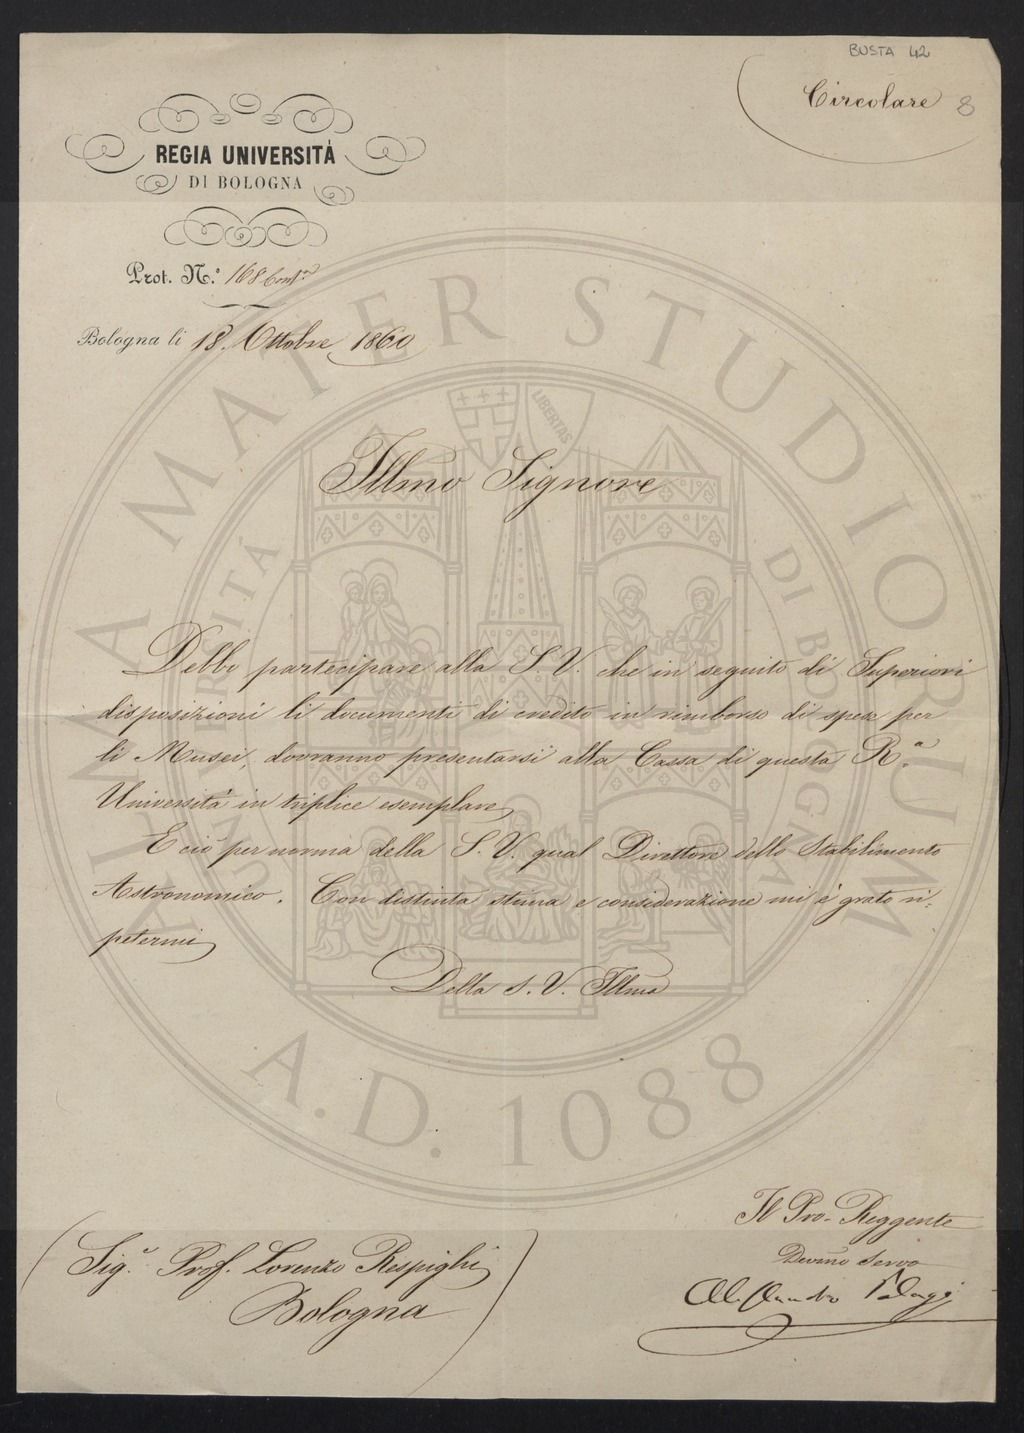 BUSTA 42
Circolare 8
REGIA UNIVERSITÀ
DI BOLOGNA
Prot. N.° 168
Bologna li 18. Ottobre 1860
Illmo Signore
Debbo partecipare alla S. V. che in seguito di Superiori
disposizioni li documenti di credito in rimborso di spese per
li Musei, dovranno presentarsi alla Cassa di questa R.a
Università in triplice esemplare,
E ciò per norma della S. V. qual Direttore dello Stabilimento
Astronomico. Con distinta stima e considerazione mi è grato ri=
petermi
Della S. V. Illma
Il Pro-Reggente
Devmo Servo
Alessandro Palagi
Sig.r Prof. Lorenzo Respighi
Bologna
ALMA MATER STUDIORUM
UNIVERSITÀ DI BOLOGNA
LIBERTAS
A.D. 1088